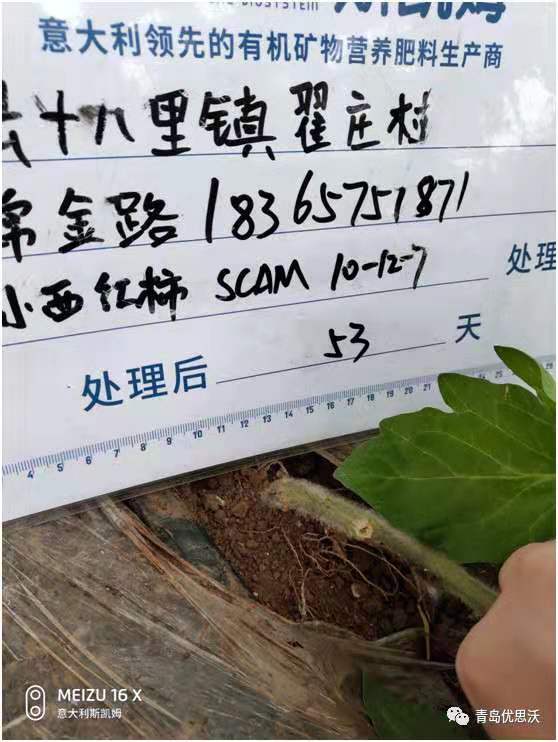 BIOSYSTEM 斯凯姆
意大利领先的有机矿物营养肥料生产商
十八里镇翟庄村
常金路 18365751871
小西红柿 SCAM 10-12-7 处理
处理后 53 天
4 5 6 7 8 9 10 11 12 13 14 15 16 17 18 19 20 21
MEIZU 16 X
意大利斯凯姆
青岛优思沃